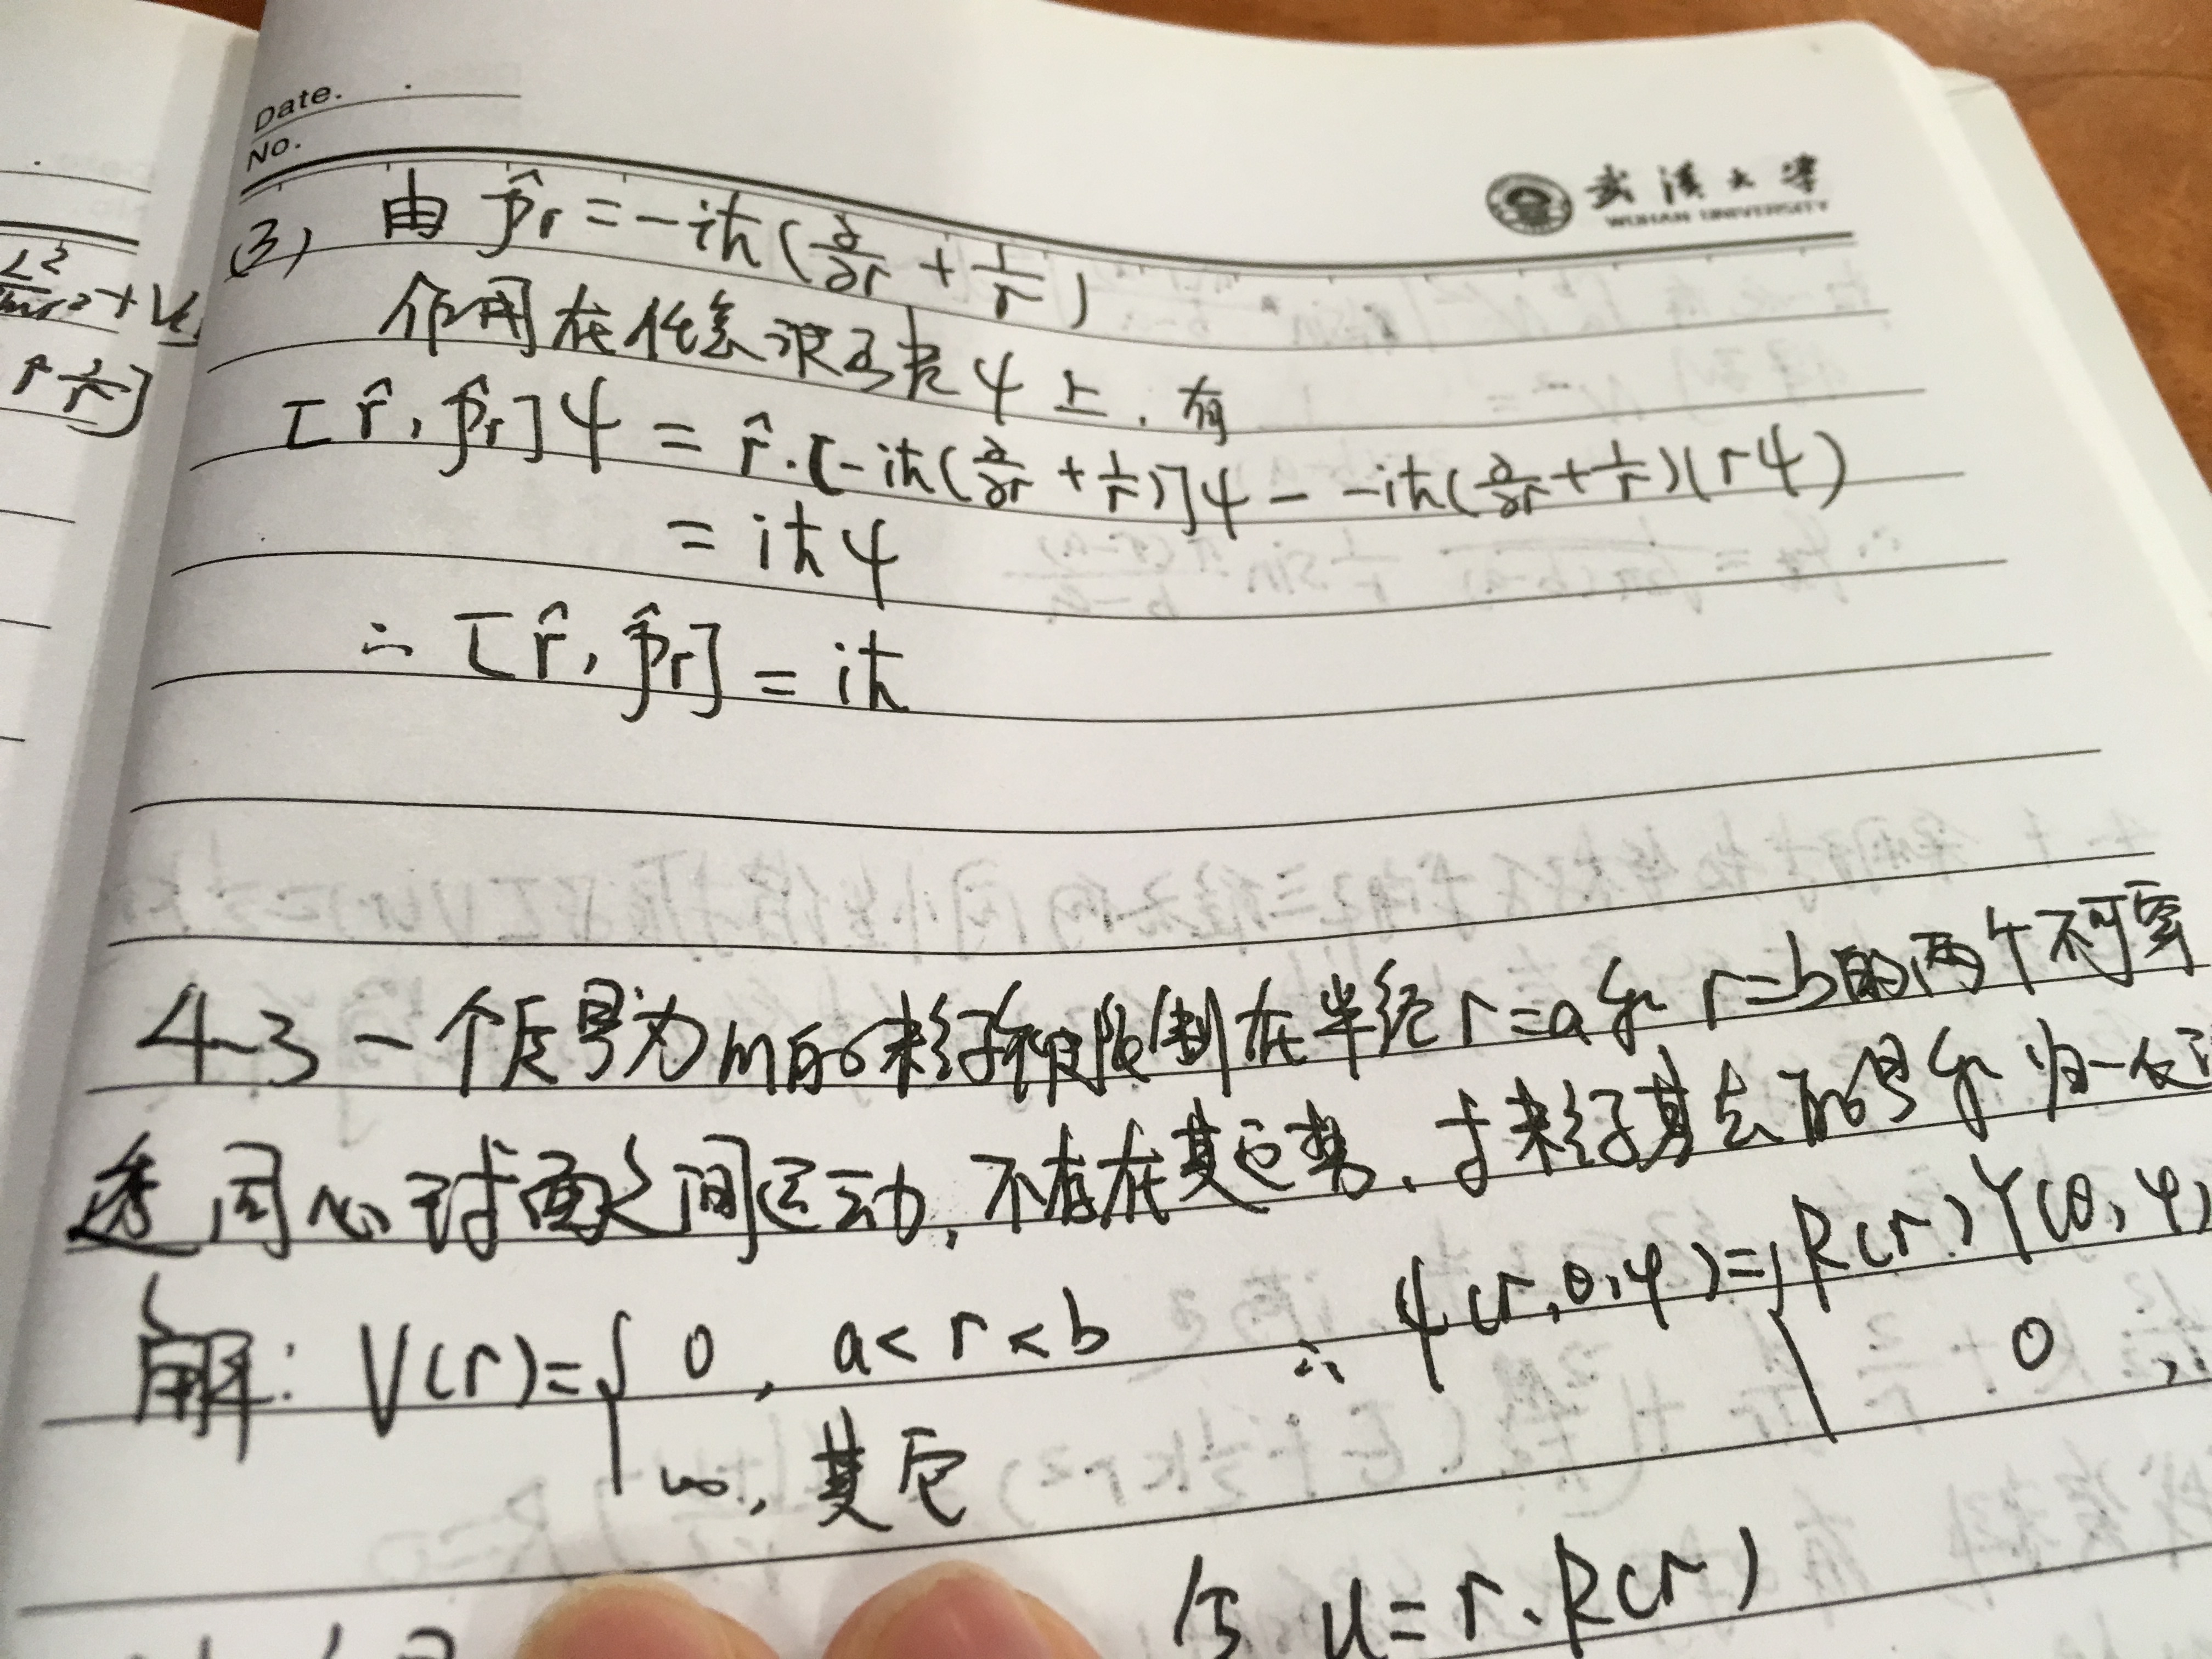 Date.
No.
武汉大学
WUHAN UNIVERSITY
(3) 由 p̂r = -iħ(∂/∂r + 1/r)
作用在任意波函数ψ上,有
[r̂, p̂r]ψ = r̂·[-iħ(∂/∂r + 1/r)]ψ - -iħ(∂/∂r + 1/r)(rψ)
= iħψ
∴ [r̂, p̂r] = iħ
4-3 一个质量为m的粒子被限制在半径r=a和r=b的两个不可穿
透同心球面之间运动,不存在其它势,求粒子基态能量和归一化
解: V(r)={ 0, a<r<b ∴ ψ(r,θ,φ)={ R(r)Y(θ,φ)
∞, 其它 0,
令 u=r·R(r)